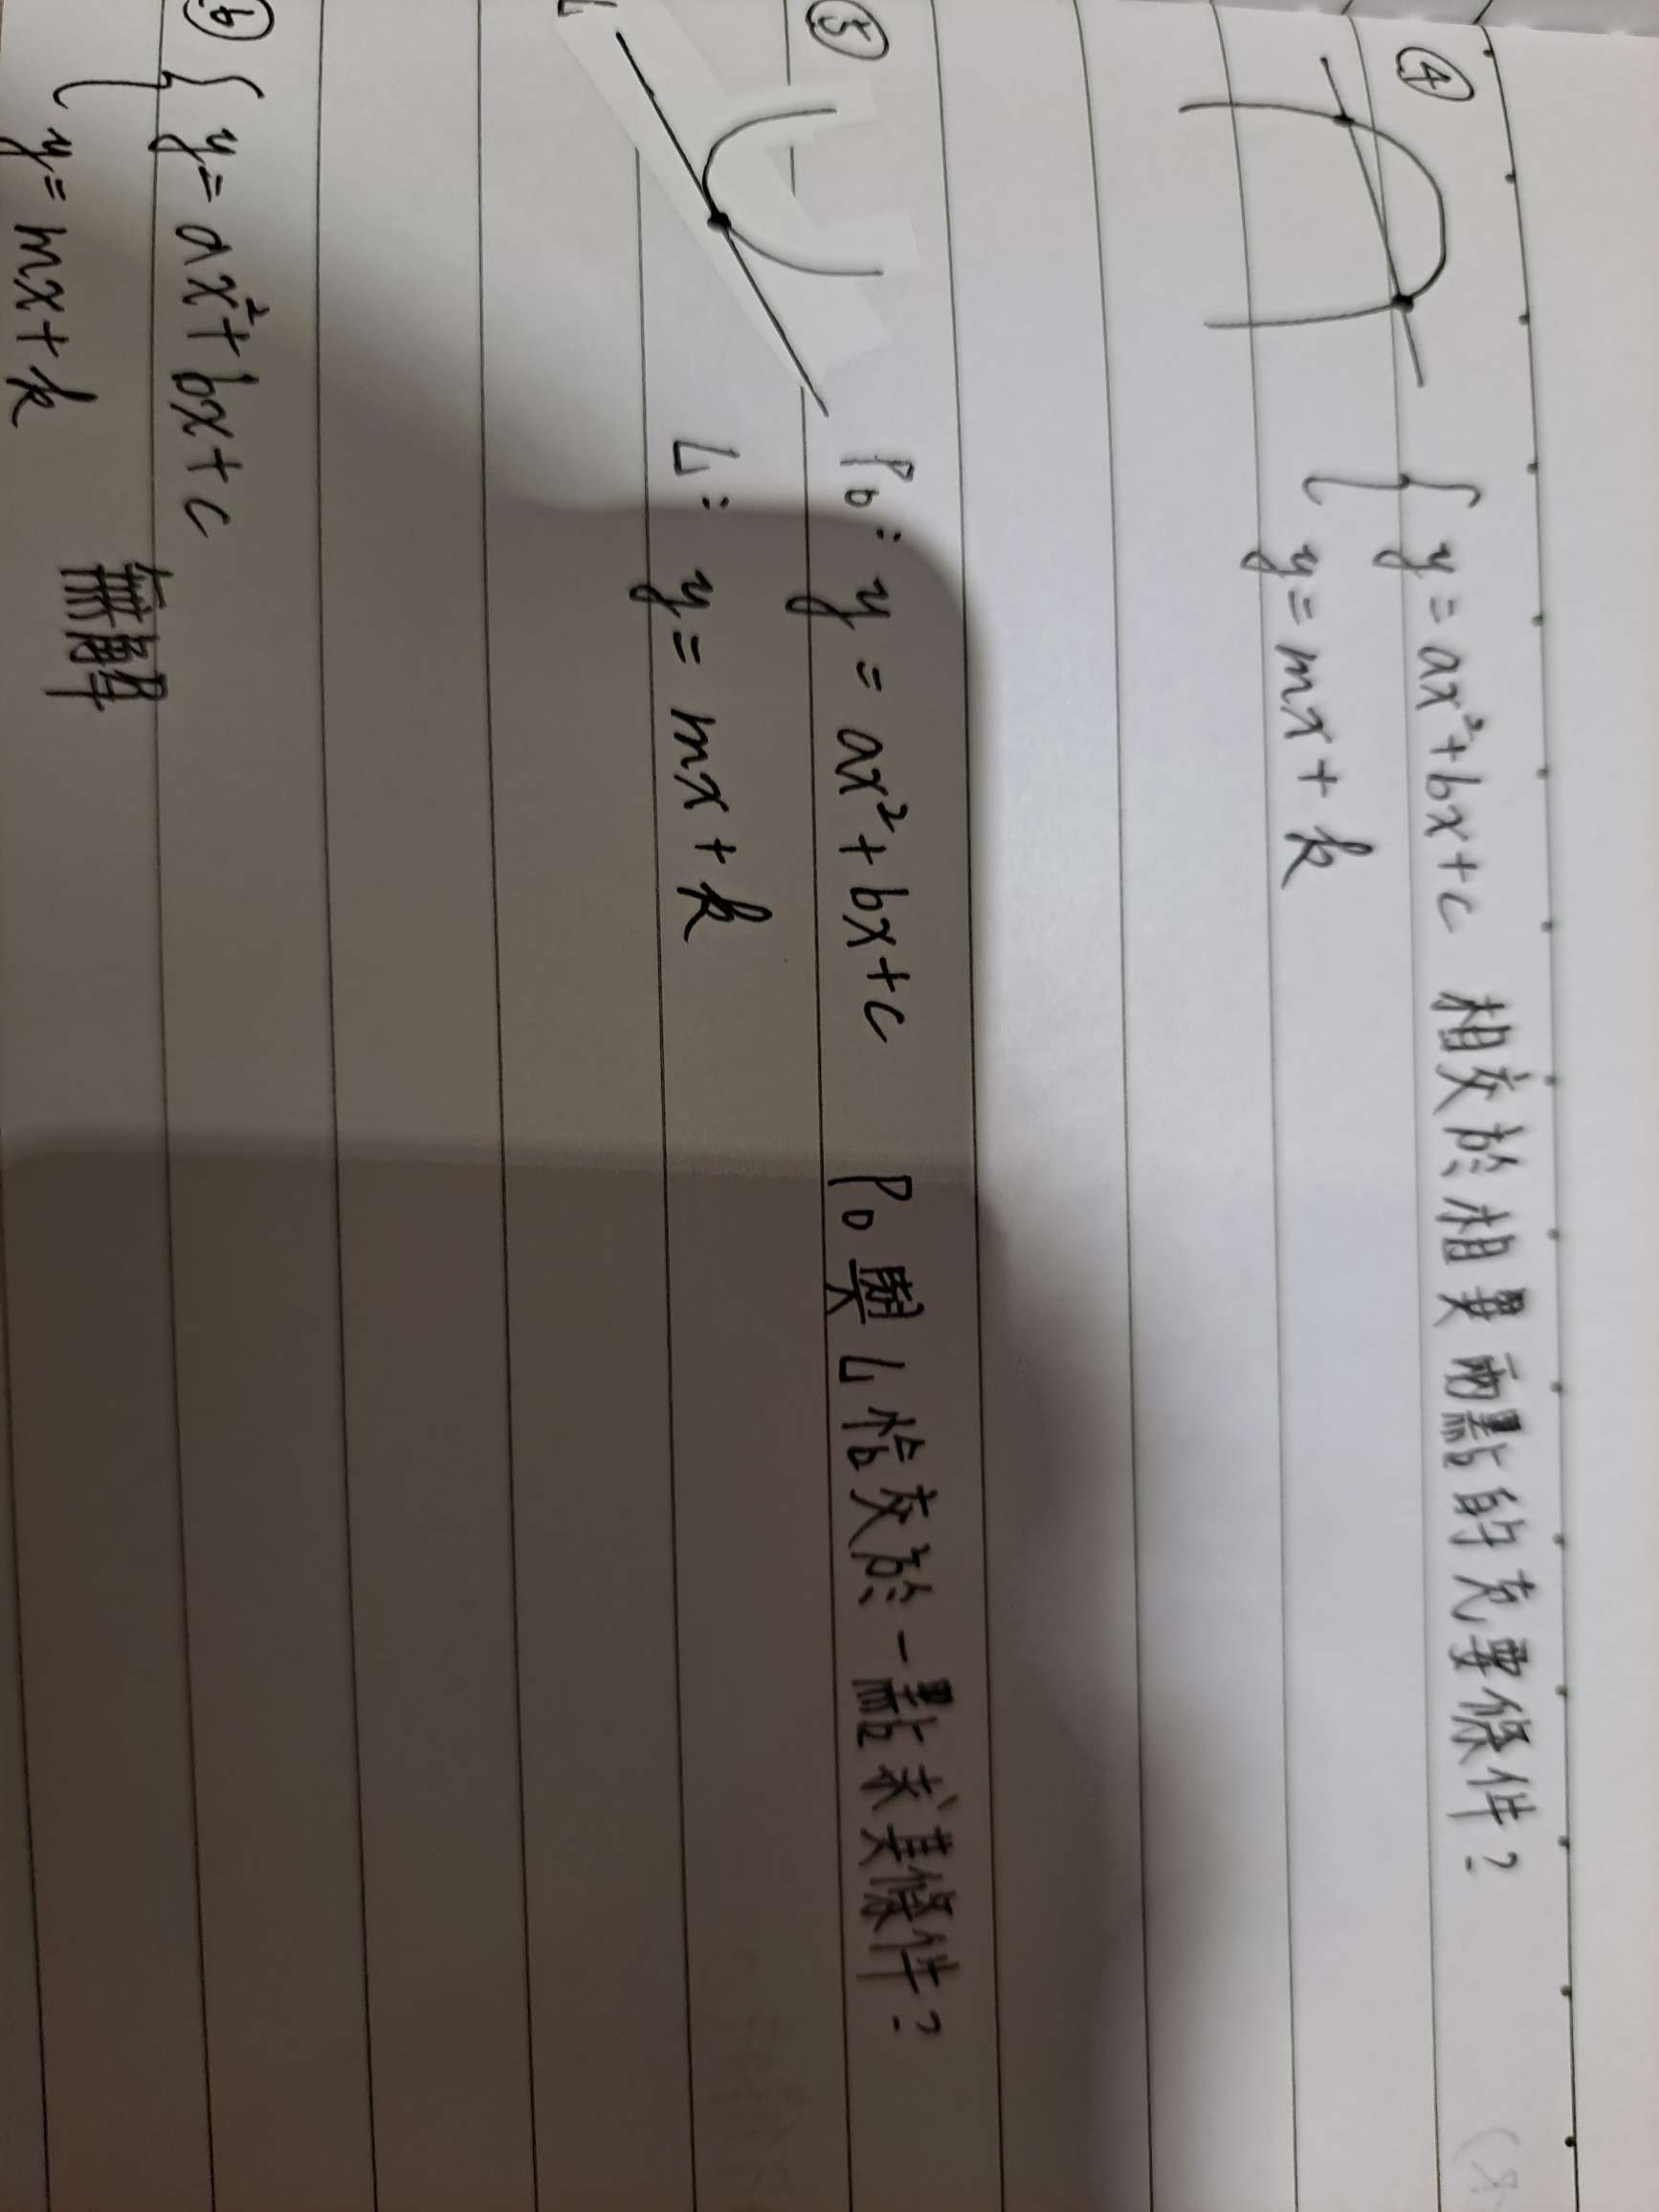 ④ { y = ax²+bx+c 相交於相異兩點的充要條件?
y = mx + k
⑤ P₀: y = ax²+bx+c P₀與L恰交於一點求其條件?
L: y = mx + k
L
⑥ { y = ax²+bx+c
y = mx+k 無解